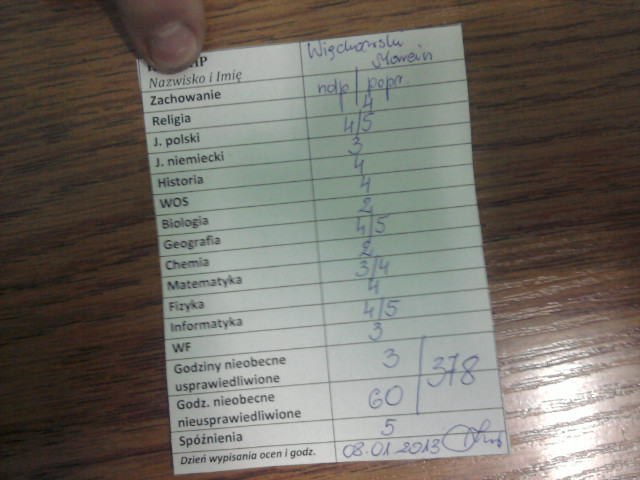 Nazwisko i Imię
Zachowanie ndp/popr.
Religia 4
J. polski 4/5
J. niemiecki 3
Historia 4
WOS 4
Biologia 2
Geografia 4/5
Chemia 2
Matematyka 3/4
Fizyka 4
Informatyka 4/5
WF 3
Godziny nieobecne
usprawiedliwione 3
378
Godz. nieobecne
nieusprawiedliwione 60
Spóźnienia 5
Dzień wypisania ocen i godz. 08.01.2013